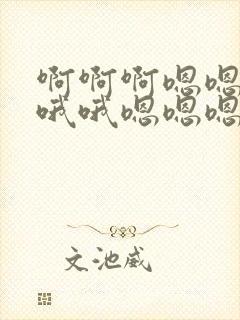 啊啊啊嗯嗯
哦哦嗯嗯嗯
文池威